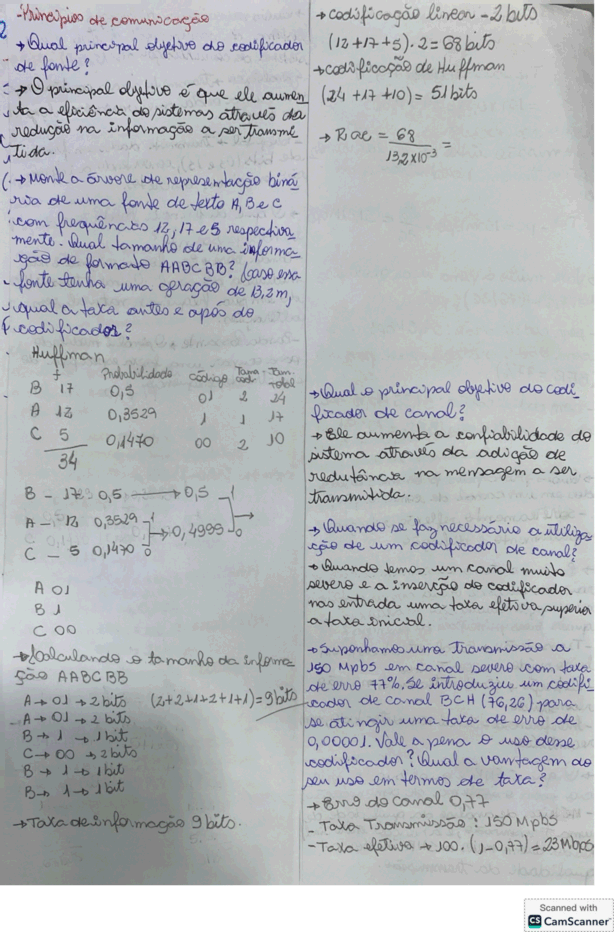 -Princípios de comunicação
→ Qual principal objetivo do codificador
de fonte?
→ O principal objetivo é que ele aumen
ta a eficiência do sistemas através da
redução na informação a ser transmi
tida.
→ Monte a árvore de representação biná
ria de uma fonte de texto A, B e C
com frequências 12, 17 e 5 respectiva
mente. Qual tamanho de uma informa-
ção de formato AABCBB? Caso essa
fonte tenha uma geração de 13,2m,
qual a taxa antes e após do
codificador?
Huffman
f Probabilidade código Tama cod Tam. total
B 17 0,5 01 2 24
A 12 0,3529 1 1 17
C 5 0,1470 00 2 10
34
B - 17 0,5 → 0,5 1
A - 12 0,3529 1 → 0,4999 0 →
C - 5 0,1470 0
A 01
B 1
C 00
→ Calculando o tamanho da informa
ção AABCBB
A → 01 → 2 bits (2+2+1+2+1+1) = 9 bits
A → 01 → 2 bits
B → 1 → 1 bit
C → 00 → 2 bits
B → 1 → 1 bit
B → 1 → 1 bit
→ Taxa de informação 9 bits.
→ codificação linear - 2 bits
(12+17+5).2 = 68 bits
→ codificação de Huffman
(24+17+10) = 51 bits
→ R ac = 68 =
13,2x10⁻³
→ Qual o principal objetivo do codi-
ficador de canal?
→ Ele aumenta a confiabilidade do
sistema através da adição de
redutância na mensagem a ser
transmitida.
→ Quando se faz necessário a utiliza
ção de um codificador de canal?
→ Quando temos um canal muito
severo e a inserção do codificador
nos entrada uma taxa efetiva superior
a taxa inicial.
→ Suponhamos uma transmissão a
150 Mpbs em canal severo com taxa
de erro 77%. Se introduziu um codifi
cador de canal BCH (76,26) para
se atingir uma taxa de erro de
0,00001. Vale a pena o uso desse
codificador? Qual a vantagem do
seu uso em termos de taxa?
→ Erro do canal 0,77
- Taxa Transmissão : 150 Mpbs
- Taxa efetiva → 100. (1-0,77) = 23 Mbps
Scanned with
CS CamScanner